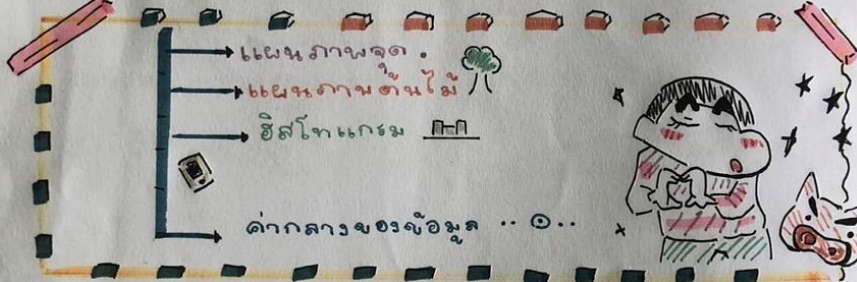 แผนภาพจุด .
แผนภาพต้นไม้
ฮิสโทแกรม
ค่ากลางของข้อมูล